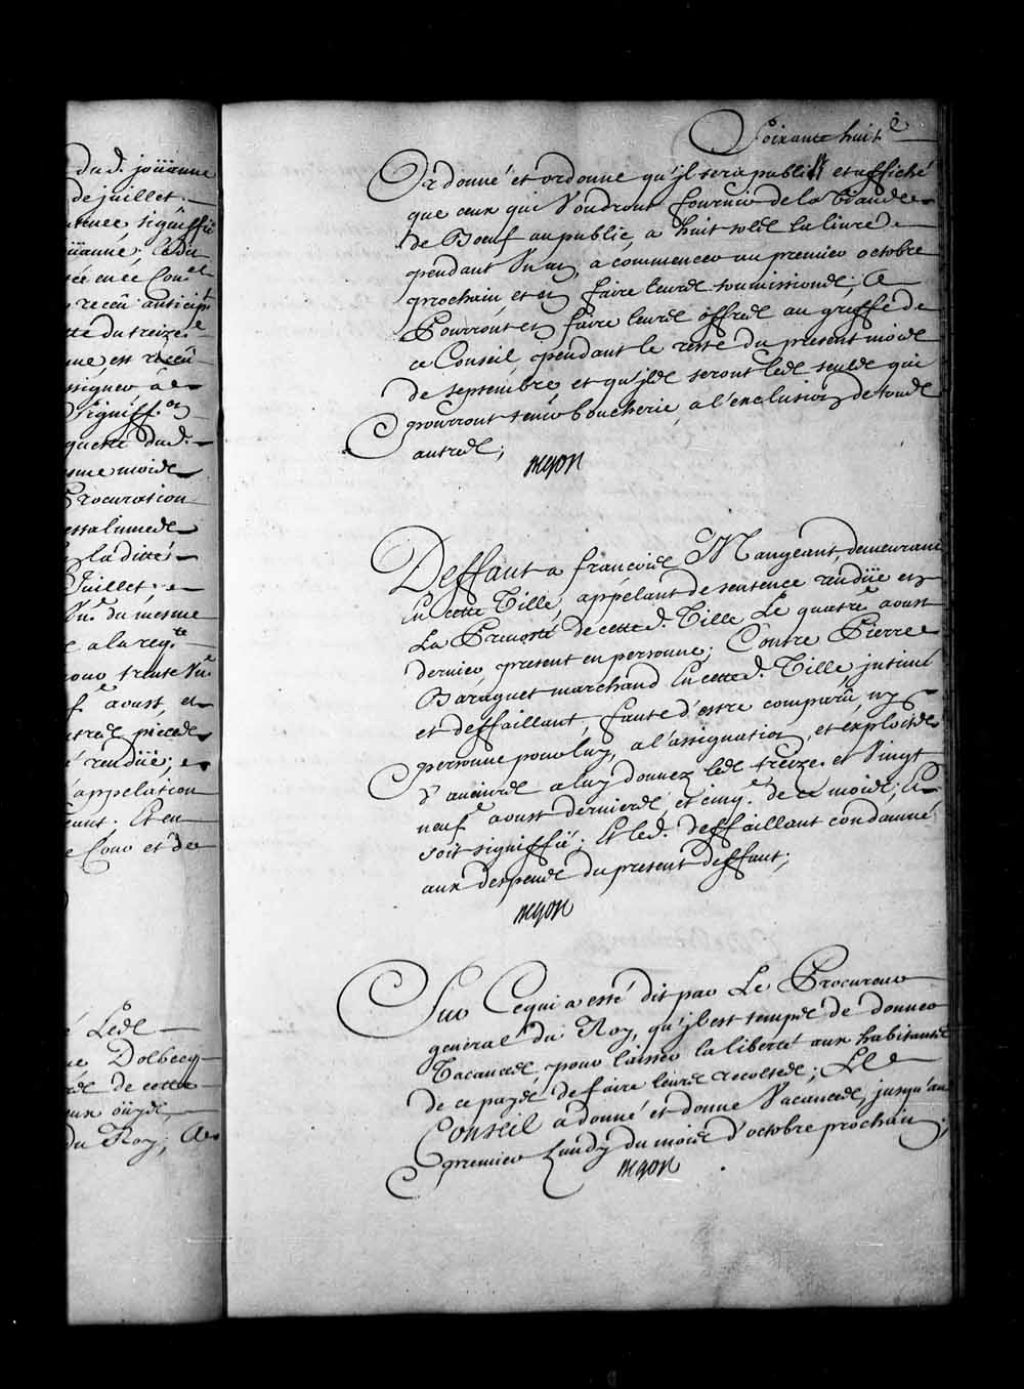 du d. joüanne
de juillet
siguiffié
receu anticip
tte du treize e
me est receu
signer a
signiff. on
queste dud.
me mois
Procuration
la ditte
Juillet
Vn e du mesme
a la req. te
pour trente Vn e
f e aoust, et
pieces
rendüe;
appelation
Et en
Cour et de
Les
Dolbecq
de cette
oüys,
du Roy;
Soixante huit e
Ordonné et ordonne qu'jl sera publié et affiché
que ceux qui Voudront fournir de la Viande
de Boeuf au public, a huit sols la livre
pendant Vn an, a commencer au premier octobre
prochain, et en faire leurs soumissions;
Pourront en faire leurs offres au greffe de
ce Conseil pendant le reste du present mois
de septembre et qu'jls seront les seuls qui
pourront tenir boucherie, a l'exclusion de tous
autres;
Begon
Deffaut a francois Mangeant, demeurant
En cette Ville, appelant de sentence rendüe en
La Prevosté de cette d. Ville Le quatre e aoust
dernier present en personne; Contre Pierre
Baraguet marchand En cette d. Ville, jntimé
et deffaillant, faute d'estre comparû, ny
personne pour luy, a l'assignation, et exploits
d'avenir a luy donnez les treize et Vingt
neuf e aoust derniers et cinq e de ce mois;
soit signiffié; Et led. deffaillant condamné
aux despens du present deffaut;
Begon
Sur Cequi a esté dit par Le Procureur
general du Roy, qu'jl est temps de donner
Vacances, pour laisser la liberté aux habitants
de ce pays de faire leurs recoltes; Le
Conseil a donné et donne Vacances, jusqu'au
premier Lundy du mois d'octobre prochain;
Begon